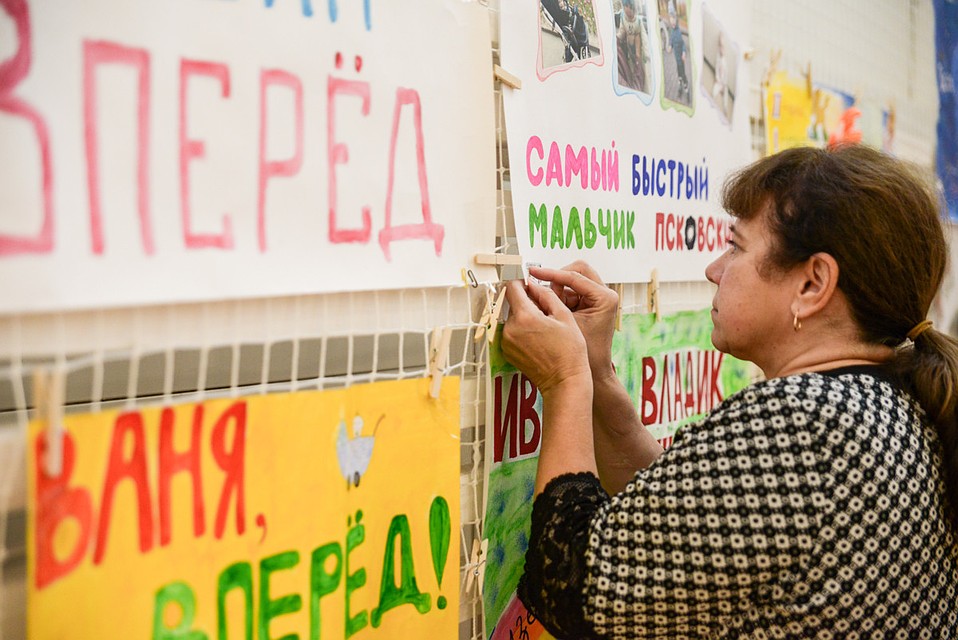 ВПЕРЁД
САМЫЙ БЫСТРЫЙ
МАЛЬЧИК
ВАНЯ,
ВПЕРЁД!
ВЛАДИК